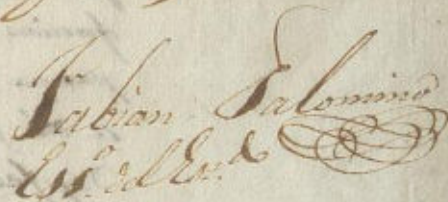 Fabian Palomino
Ess.º del Est.do